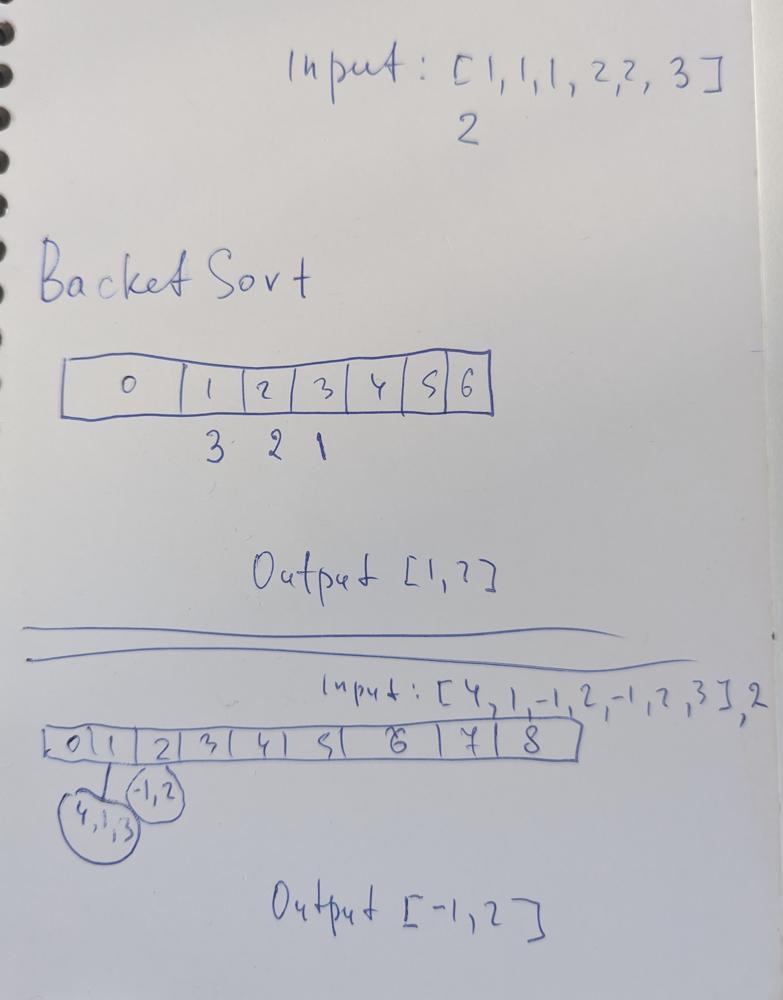 Input: [1, 1, 1, 2, 2, 3]
2
Backet Sort
0 1 2 3 4 5 6
3 2 1
Output [1, 2]
Input: [4, 1, -1, 2, -1, 2, 3], 2
0 1 2 3 4 5 6 7 8
-1, 2
4, 1, 3
Output [-1, 2]